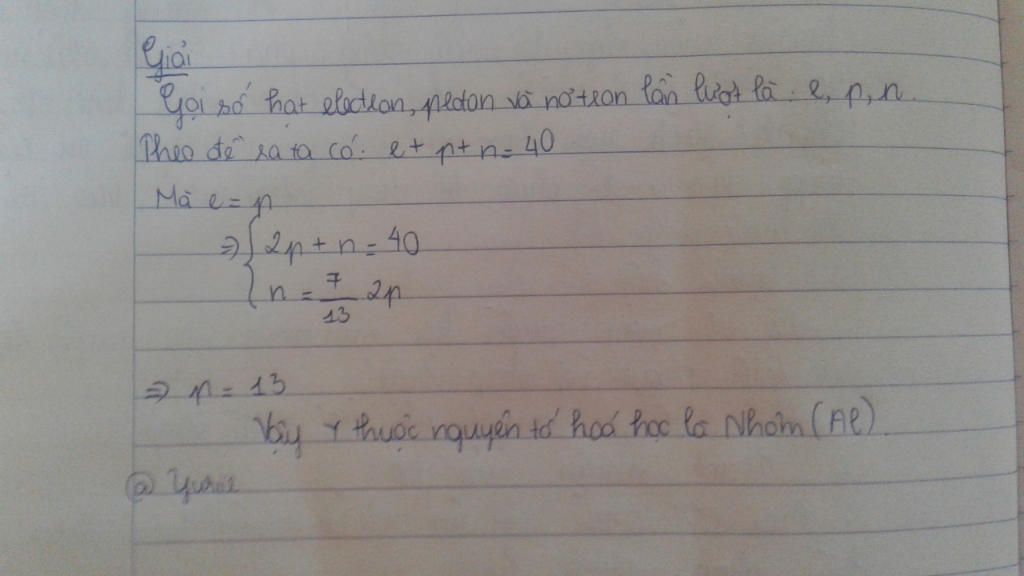 Giải
Gọi số hạt electron, proton và nơtron lần lượt là: e, p, n.
Theo đề ra ta có: e + p + n = 40
Mà e = p
⇒ { 2p + n = 40
n = 7/13 2p
⇒ p = 13
Vậy Y thuộc nguyên tố hoá học là Nhôm (Al).
@ Yurie